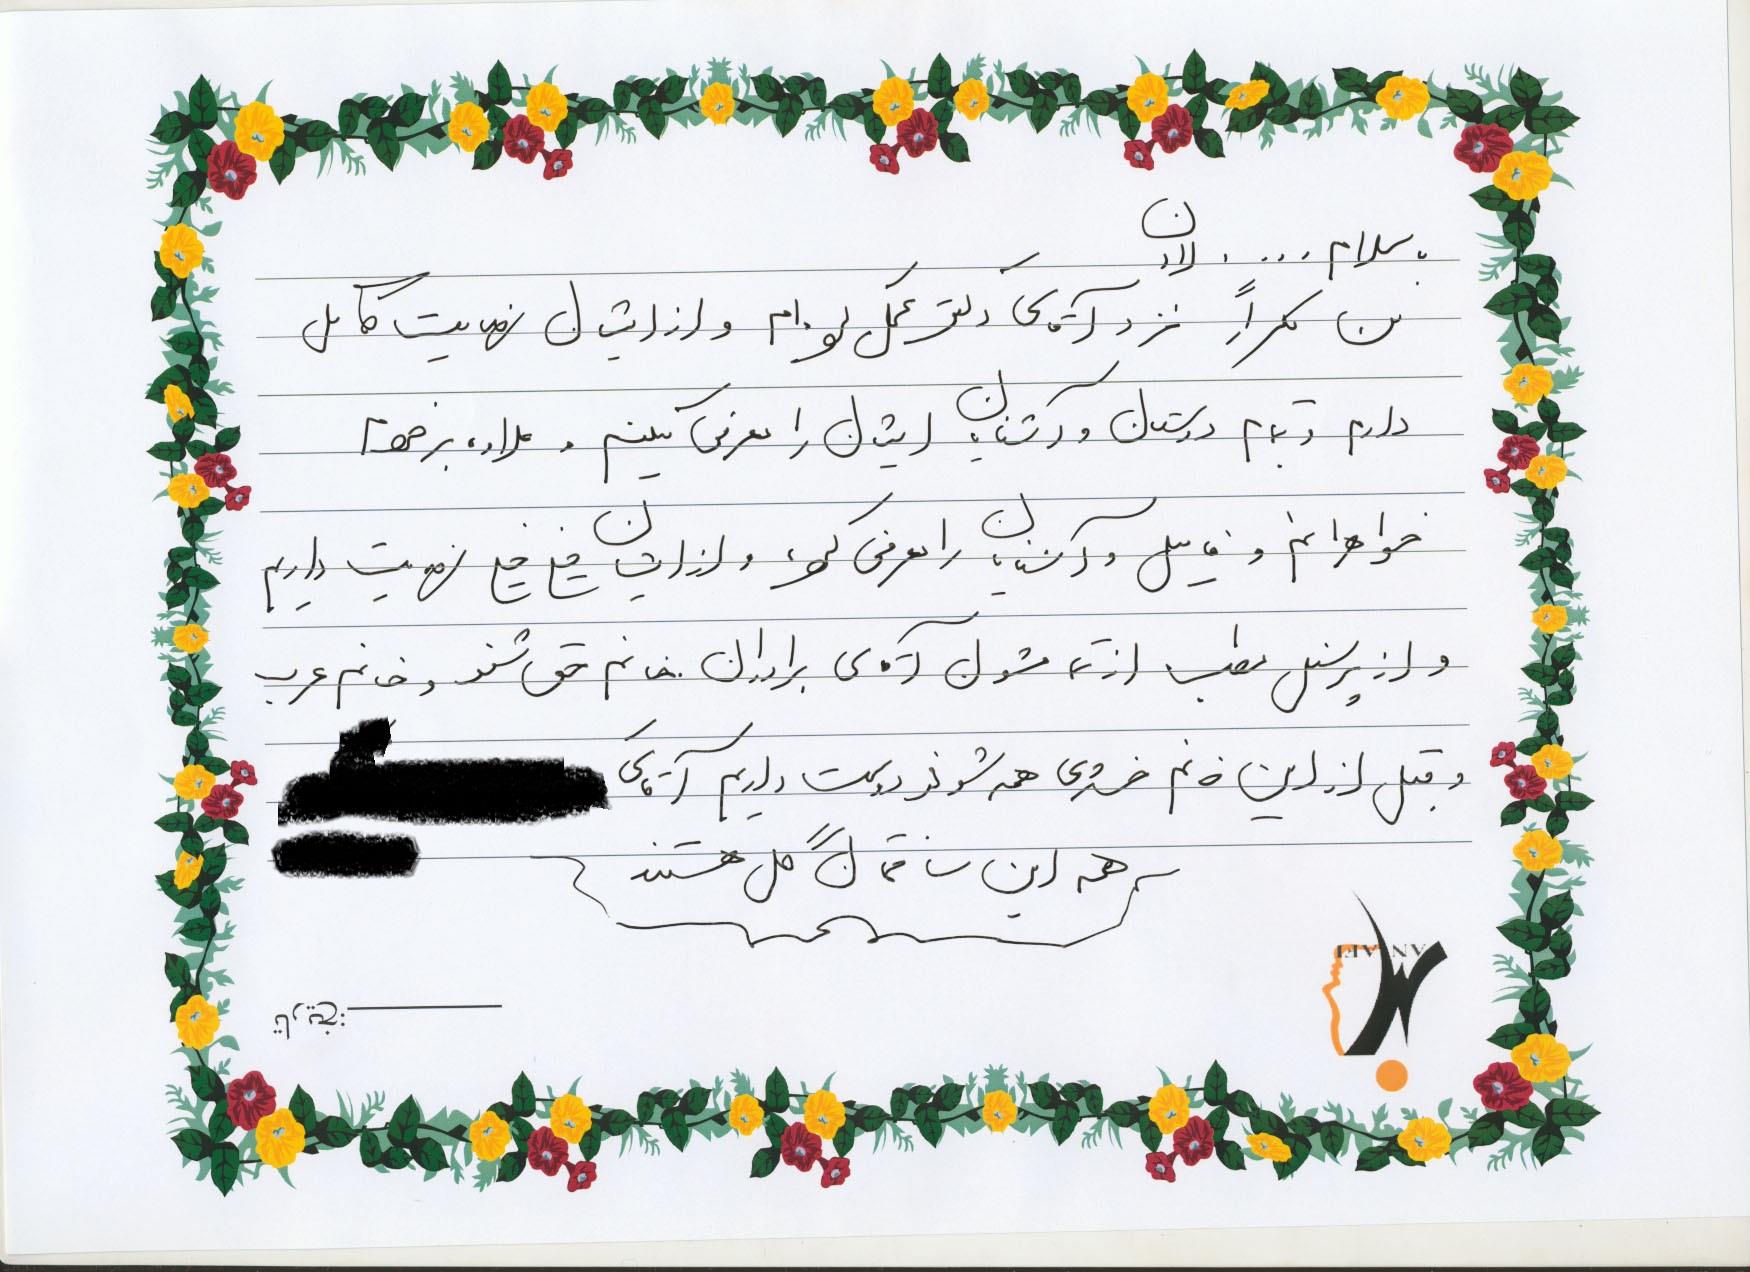 با سلام .... لادن
من مکرراً نزد آقای دکتر عمل بوده‌ام و از ایشان رضایت کامل
دارم و تمام دوستان و آشنایان ایشان را معرفی میکنم و علاوه بر خودم
خواهرانم و فامیل و آشنایان را معرفی کرده و از ایشان خیلی خیلی رضایت داریم
و از پرسنل مطب از تمامشون آقای برادران خانم حق شنو و خانم عرب
و قبل از این خانم خسروی همه‌شونو دوست داریم آقای
همه این ساختمان گل هستند